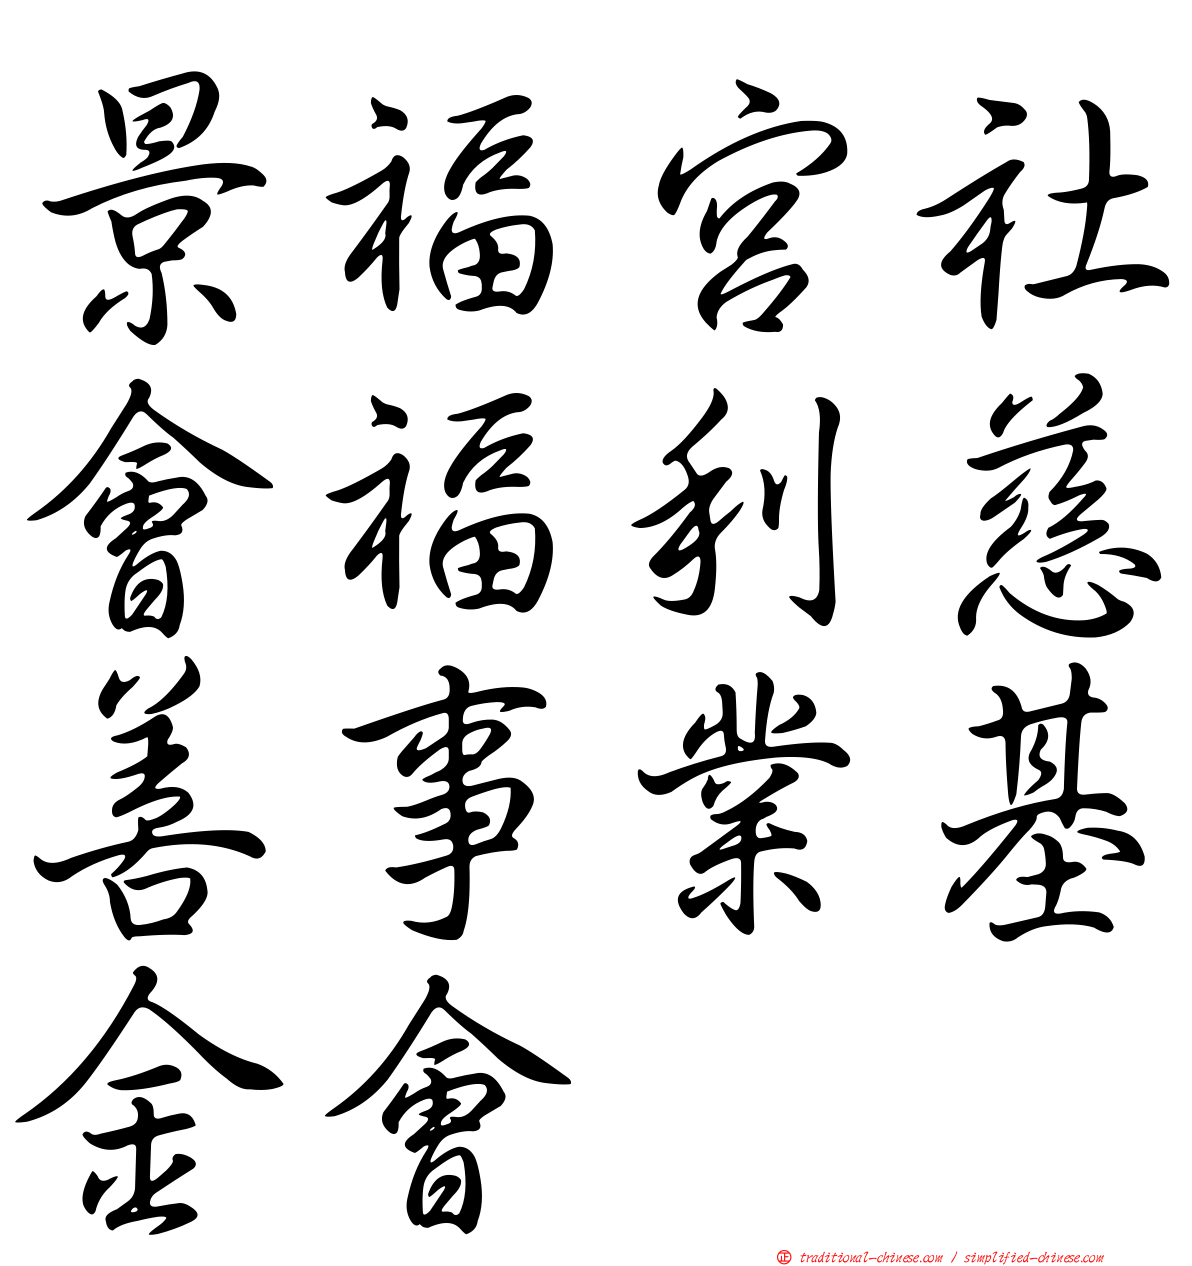 景福宮社
會福利慈
善事業基
金會
正 traditional-chinese.com / simplified-chinese.com